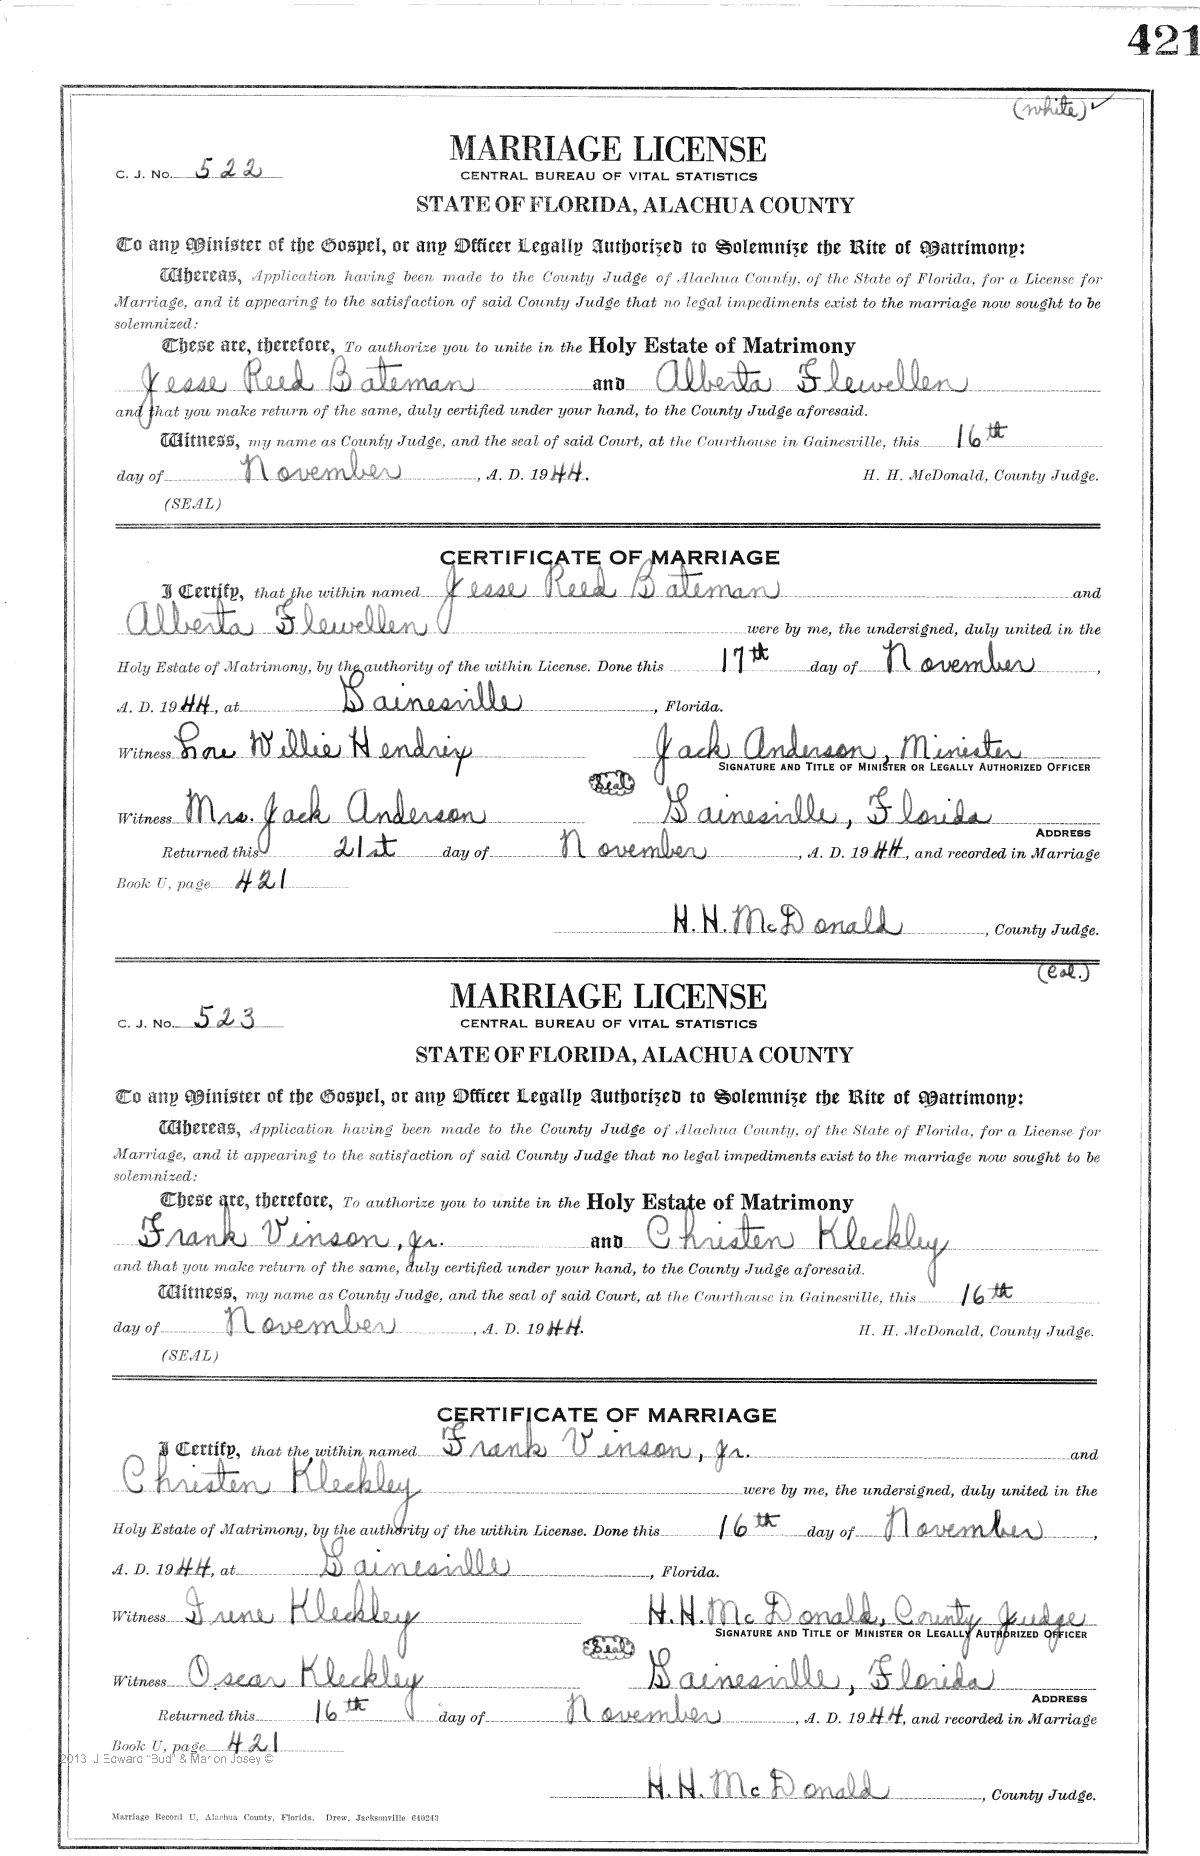 421
(white) ✓
MARRIAGE LICENSE
C. J. No. 522
CENTRAL BUREAU OF VITAL STATISTICS
STATE OF FLORIDA, ALACHUA COUNTY
To any Minister of the Gospel, or any Officer Legally Authorized to Solemnize the Rite of Matrimony:
Whereas, Application having been made to the County Judge of Alachua County, of the State of Florida, for a License for
Marriage, and it appearing to the satisfaction of said County Judge that no legal impediments exist to the marriage now sought to be
solemnized:
These are, therefore, To authorize you to unite in the Holy Estate of Matrimony
Jesse Reed Bateman and Alberta Flewellen
and that you make return of the same, duly certified under your hand, to the County Judge aforesaid.
Witness, my name as County Judge, and the seal of said Court, at the Courthouse in Gainesville, this 16th
day of November, A. D. 1944. H. H. McDonald, County Judge.
(SEAL)
CERTIFICATE OF MARRIAGE
I Certify, that the within named Jesse Reed Bateman and
Alberta Flewellen were by me, the undersigned, duly united in the
Holy Estate of Matrimony, by the authority of the within License. Done this 17th day of November,
A. D. 1944, at Gainesville, Florida.
Witness Willie Hendrix Jack Anderson, Minister
SIGNATURE AND TITLE OF MINISTER OR LEGALLY AUTHORIZED OFFICER
Seal
Witness Mrs. Jack Anderson Gainesville, Florida
ADDRESS
Returned this 21st day of November, A. D. 1944, and recorded in Marriage
Book U, page 421
H. H. McDonald, County Judge.
(Col.)
MARRIAGE LICENSE
C. J. No. 523
CENTRAL BUREAU OF VITAL STATISTICS
STATE OF FLORIDA, ALACHUA COUNTY
To any Minister of the Gospel, or any Officer Legally Authorized to Solemnize the Rite of Matrimony:
Whereas, Application having been made to the County Judge of Alachua County, of the State of Florida, for a License for
Marriage, and it appearing to the satisfaction of said County Judge that no legal impediments exist to the marriage now sought to be
solemnized:
These are, therefore, To authorize you to unite in the Holy Estate of Matrimony
Frank Vinson, Jr. and Christen Kleckley
and that you make return of the same, duly certified under your hand, to the County Judge aforesaid.
Witness, my name as County Judge, and the seal of said Court, at the Courthouse in Gainesville, this 16th
day of November, A. D. 1944. H. H. McDonald, County Judge.
(SEAL)
CERTIFICATE OF MARRIAGE
I Certify, that the within named Frank Vinson, Jr. and
Christen Kleckley were by me, the undersigned, duly united in the
Holy Estate of Matrimony, by the authority of the within License. Done this 16th day of November,
A. D. 1944, at Gainesville, Florida.
Witness Irene Kleckley H. H. McDonald, County Judge
SIGNATURE AND TITLE OF MINISTER OR LEGALLY AUTHORIZED OFFICER
Seal
Witness Oscar Kleckley Gainesville, Florida
ADDRESS
Returned this 16th day of November, A. D. 1944, and recorded in Marriage
Book U, page 421
2013 J Edward "Bud" & Marion Josey ©
H. H. McDonald, County Judge.
Marriage Record U, Alachua County, Florida. Drew, Jacksonville 640243